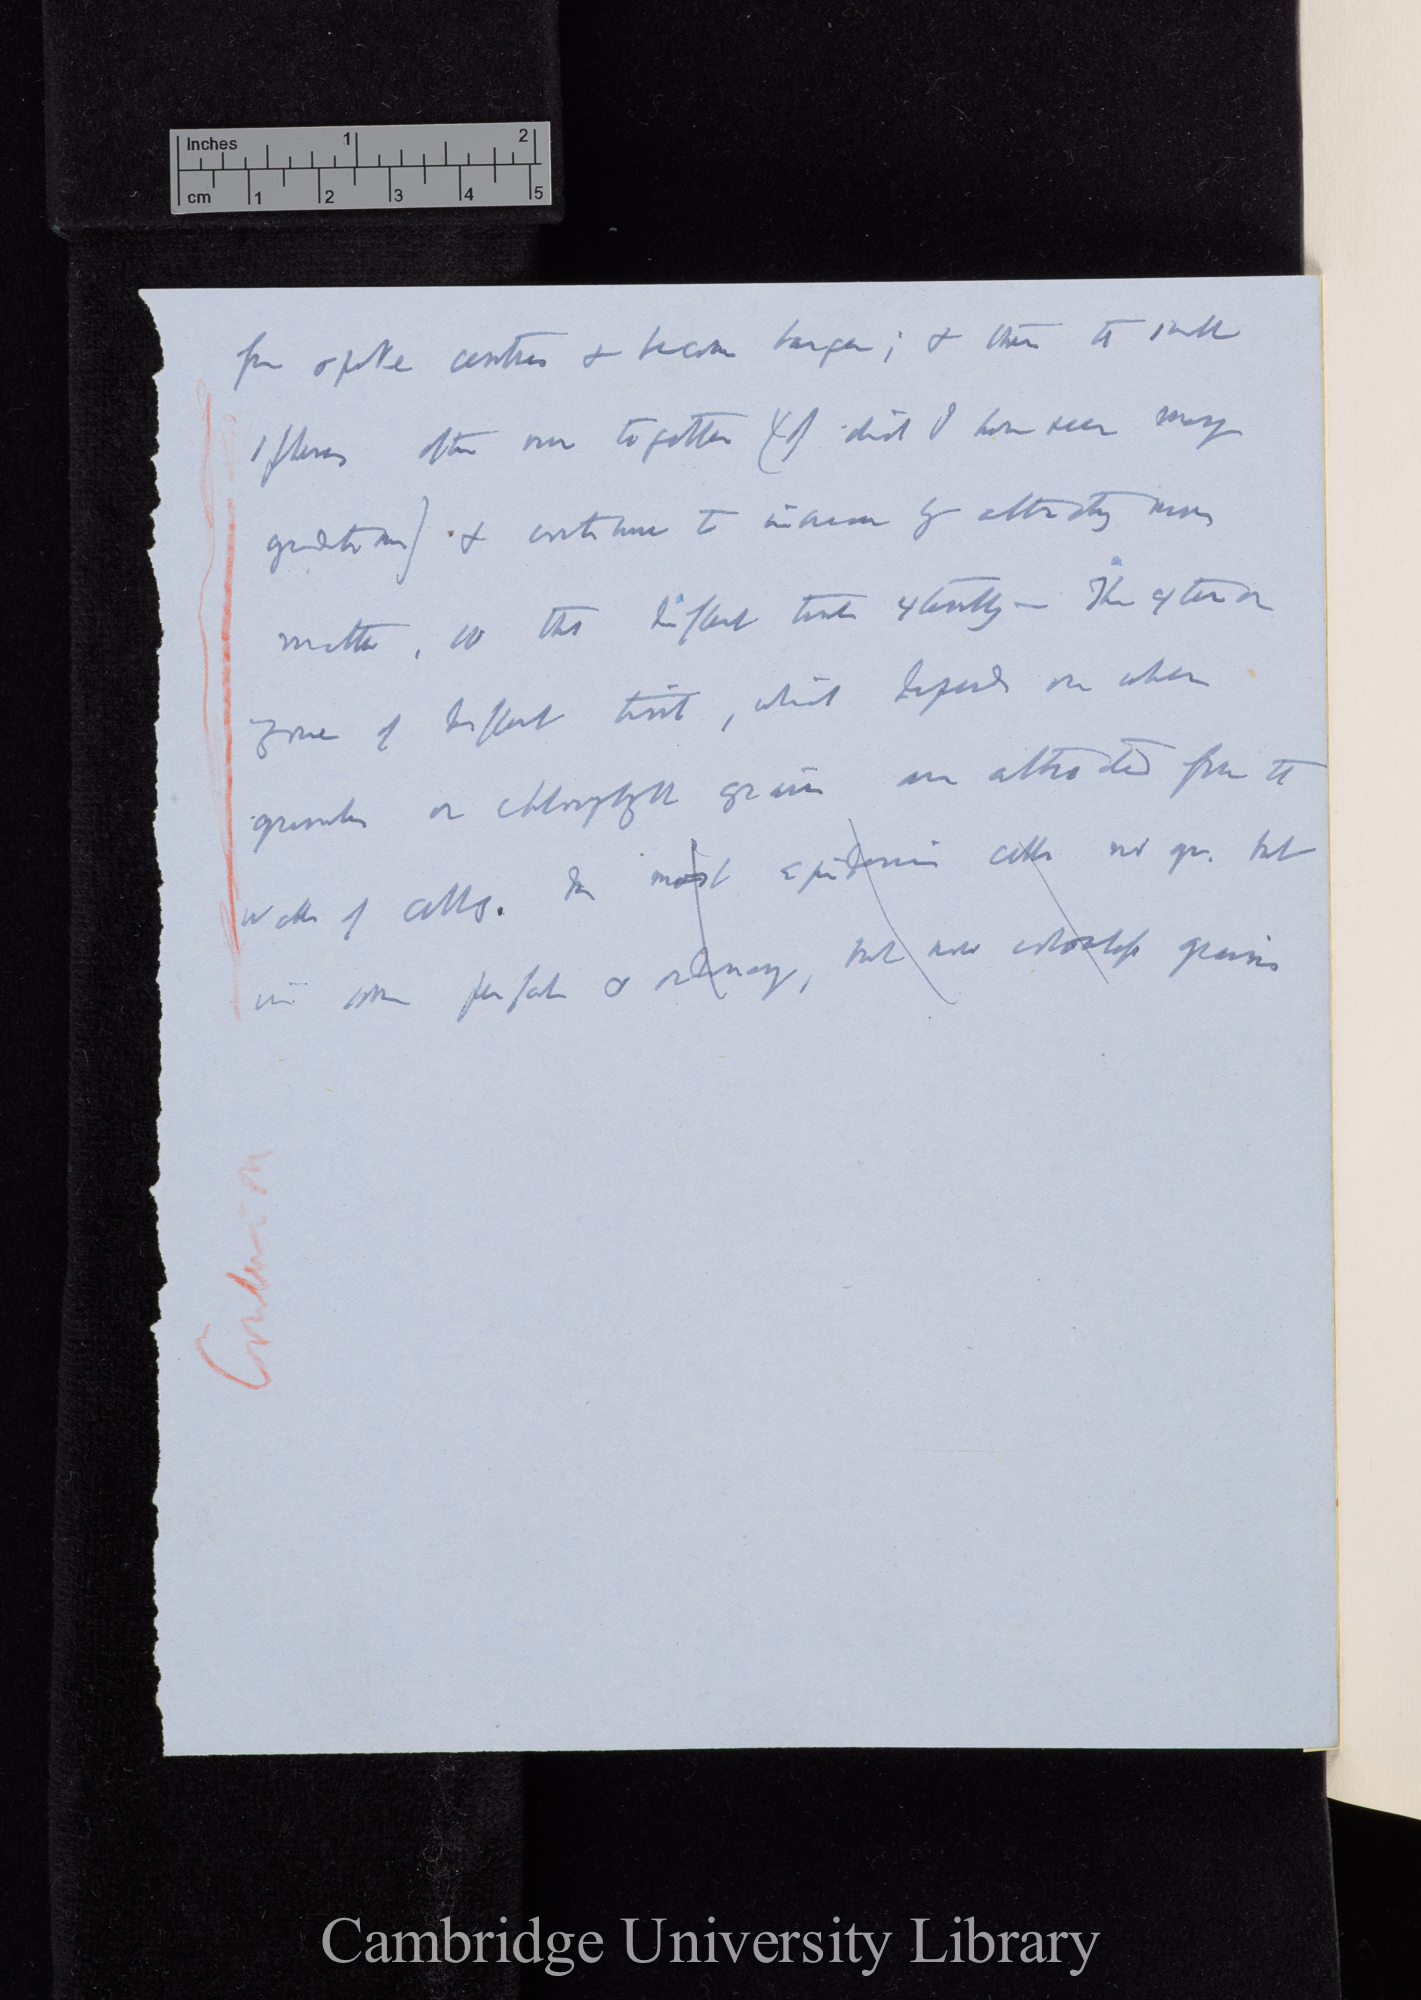 Inches 1 2
cm 1 2 3 4 5
opake centres & become larger; & then the small
spheres often run together (of which I have seen many
gradations) & continue to increase by attracting more
matter, so the different tints externally — The exterior
zone of different tint, which depends on when
granules or chlorophyll grains are attracted from the
walls of cells. In most epidermic cells no gr. but
in some perfect & ordinary, but now colourless grains
Conclusion
Cambridge University Library